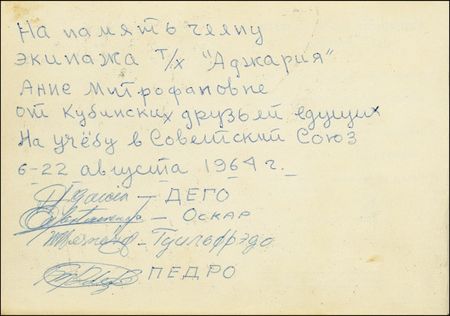 На память члену
экипажа т/х "Аджария"
Ание Митрофановне
от Кубинских друзьей едущих
На учёбу в Советский Союз
6-22 августа 1964 г.
Garcia - ДЕГО
- ОСКАР
- Гуильфрэдо
ПЕДРО